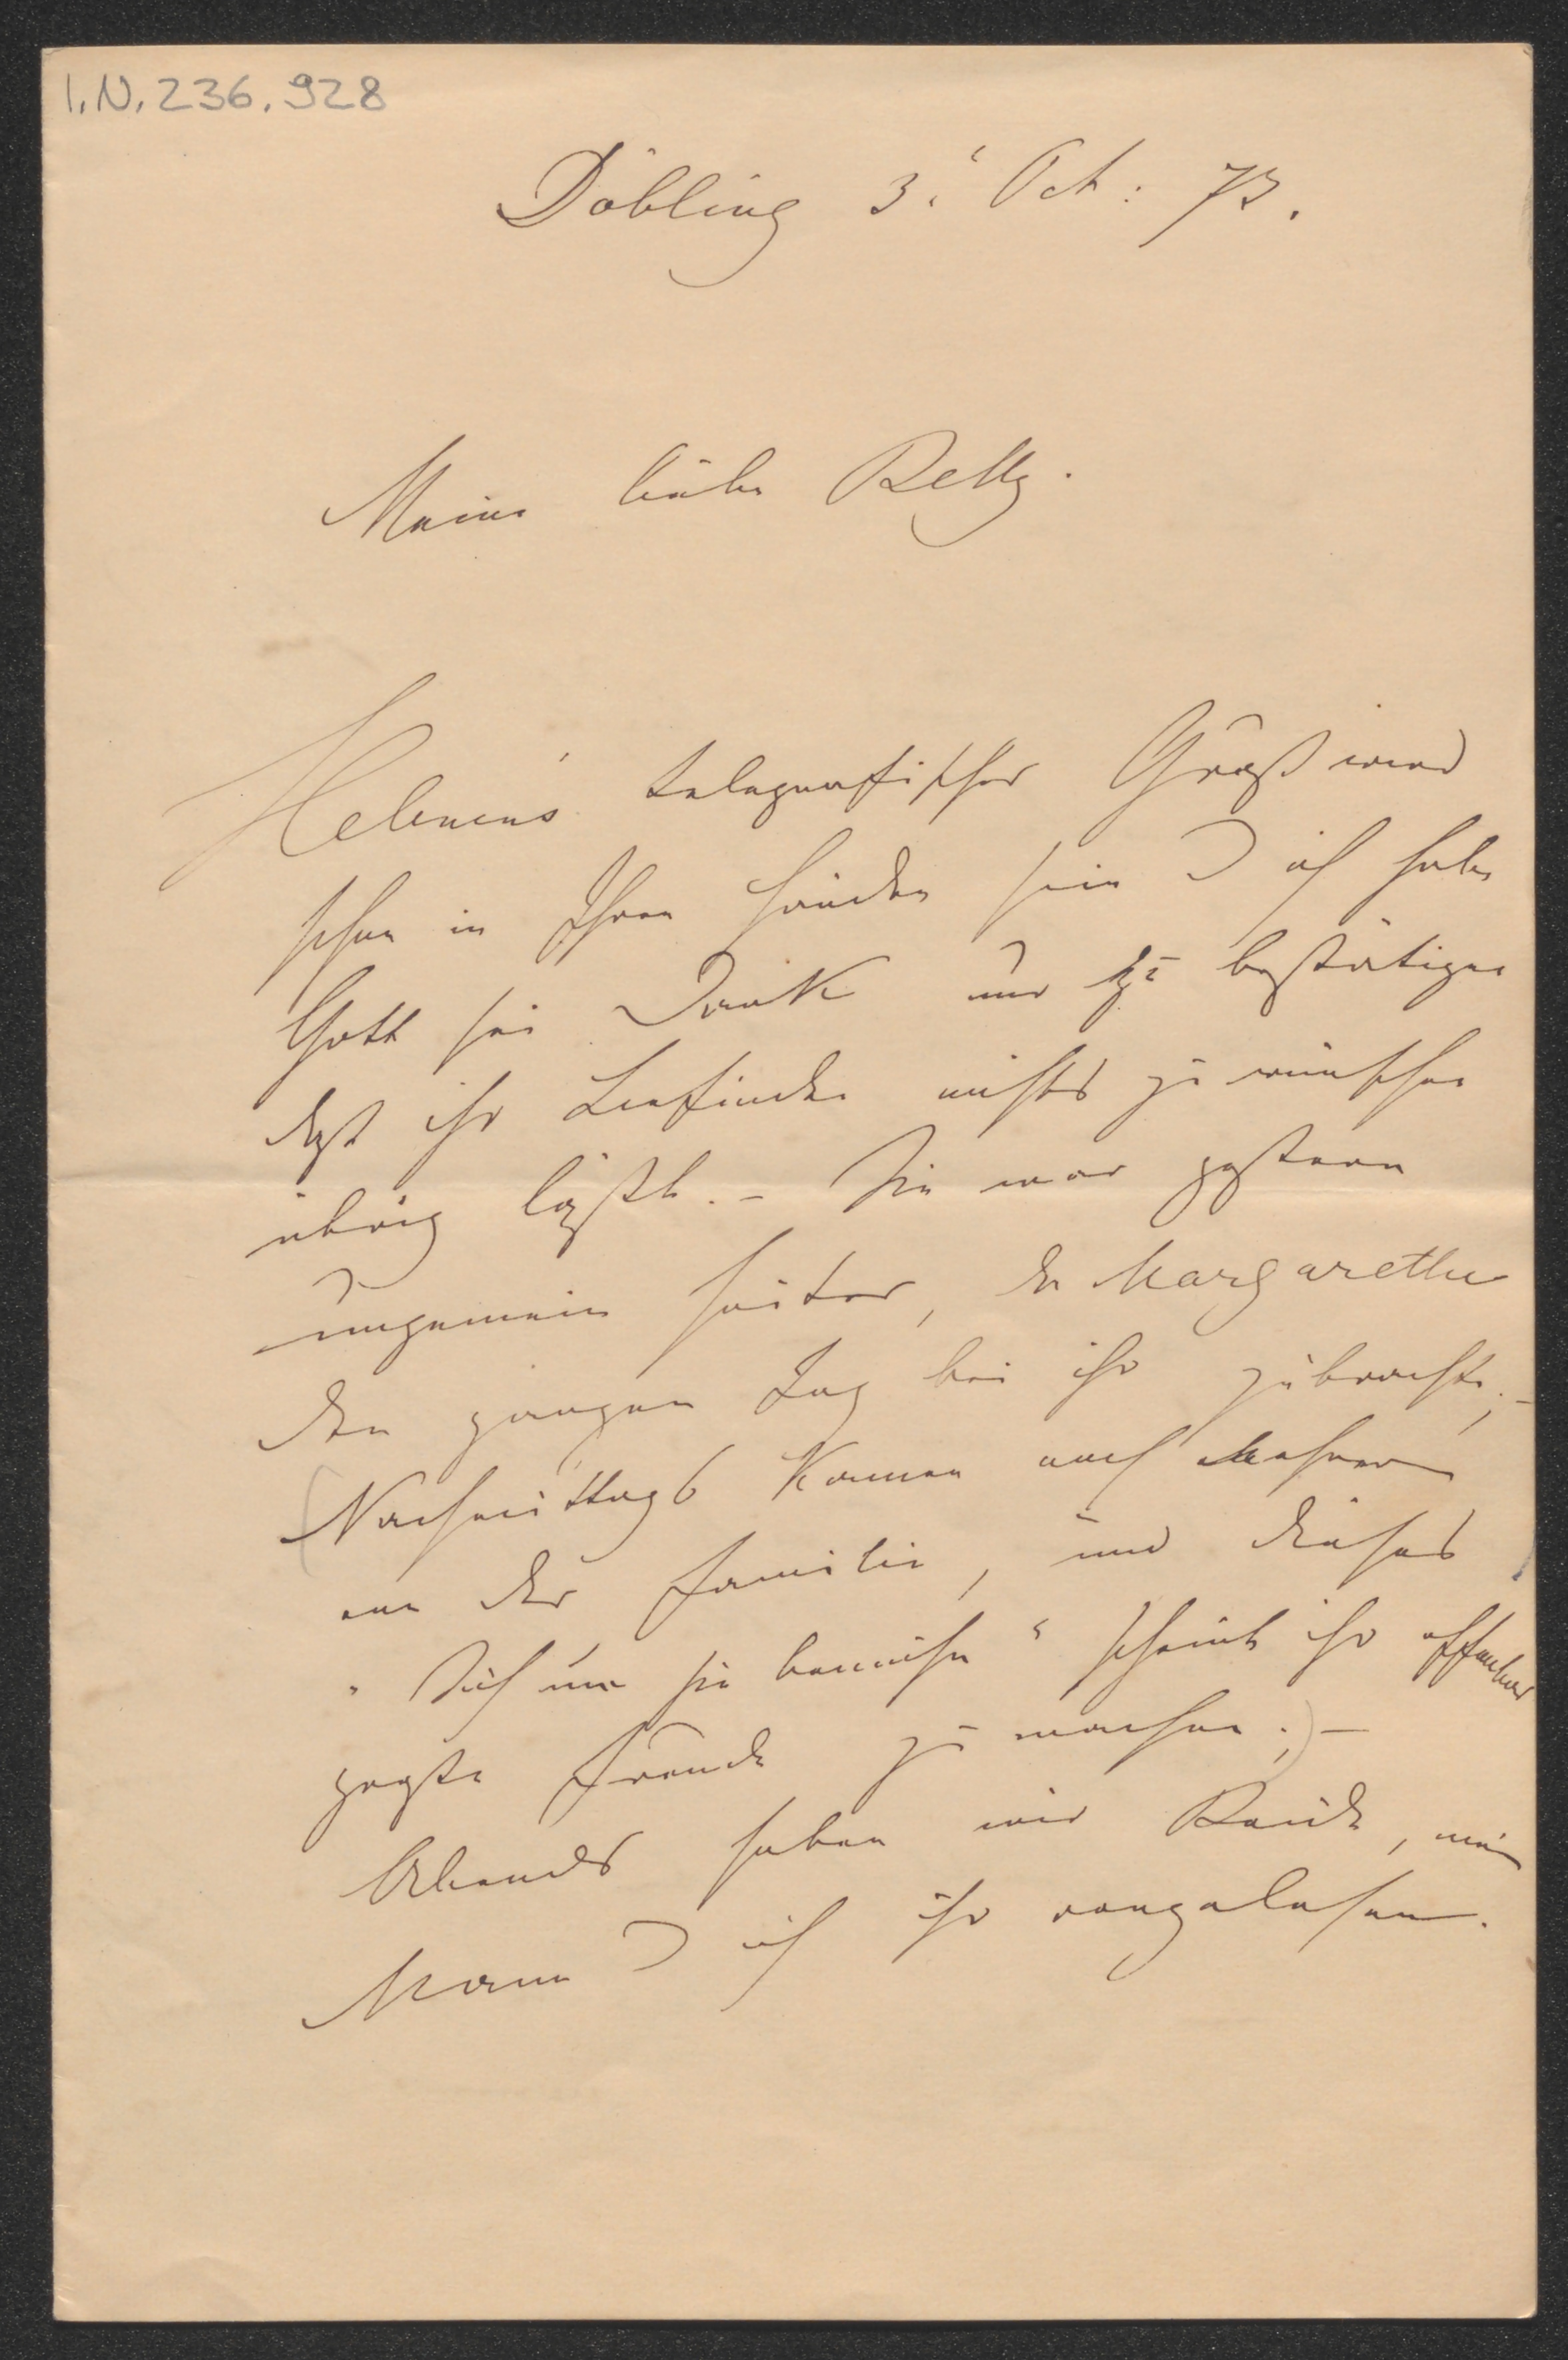 I.N. 236.928
Döbling 3. Oct: 73.
Meine liebe Betty.
Helenens telegrafischer Gruß wird
schon in Ihren Händen sein & ich habe
Gott sei Dank nur zu bestätigen
daß ihr Befinden nichts zu wünschen
übrig läßt. – Sie war gestern
ungemein heiter, da Margarethe
den ganzen Tag bei ihr zubrachte; –
(Nachmittags kamen auch Mehrere
von der Familie, und dieses
"Sich um sie bemühen" scheint ihr offenbar
große Freude zu machen.) –
Abends haben wir Beide, mein
Mann & ich ihr vorgelesen.